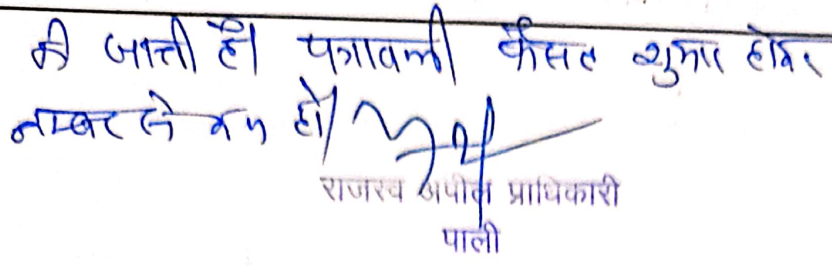 की जाती है। पत्रावली फैसल शुमार होकर
नम्बर से कम हो।
राजस्व अपील प्राधिकारी
पाली